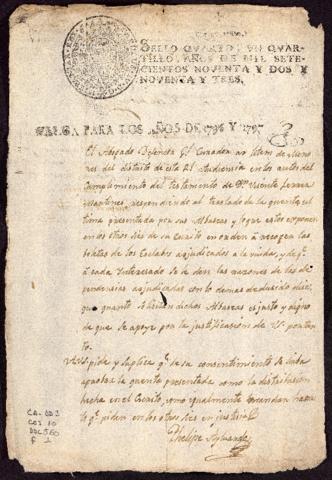 SELLO QUARTO, UN QUAR-
TILLO, AÑOS DE MIL SETE-
CIENTOS NOVENTA Y DOS Y
NOVENTA Y TRES.
VALGA PARA LOS AÑOS DE 1796 Y 1797
El Abogado Defensor Gl. de Meno-
res del distrito de esta Rl. Audiencia en los autos del
Cumplimiento del Testamento de Dn. Vicente
respondiendo al traslado de la quenta
tima presentada por sus Albaceas y loque estos exponen
en los otros sies de su Escrito en orden á recoger las
boletas de los Esclabos adjudicados a la viuda, y de qe.
á cada Interesado se le den las razones de las de-
pendencias adjudicadas con lo demas deducido dice:
que quanto dichos Albaceas es justo y digno
de que se apoye por la justificacion de V.S. portan-
to
A V.S. pide y suplica qe. de su consentimiento se sirba
aprobar la quenta presentada como la distribucion
hecha en el Escrito, como igualmente mandar hacer
lo qe. piden en los otros sies en justicia
Phelipe
CA. 003
COJ. 10
DOC 560
F 1